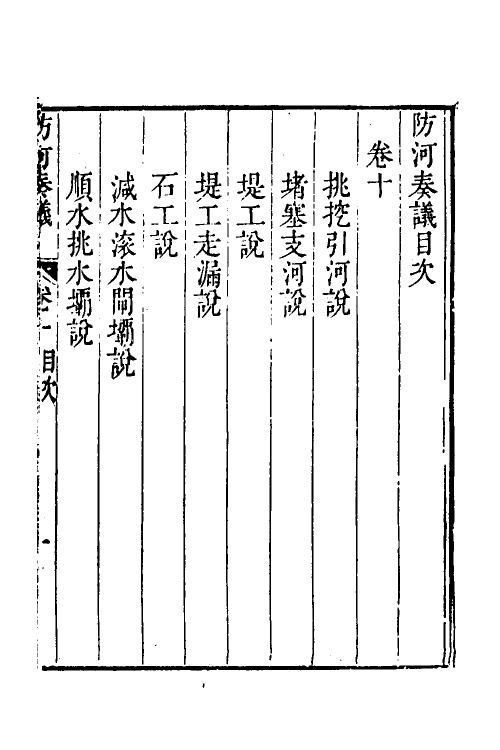 防河奏議目次
卷十
挑挖引河說
堵塞支河說
堤工說
堤工走漏說
石工說
減水滚水閘壩說
順水挑水壩說
防河奏議 卷十目次 一